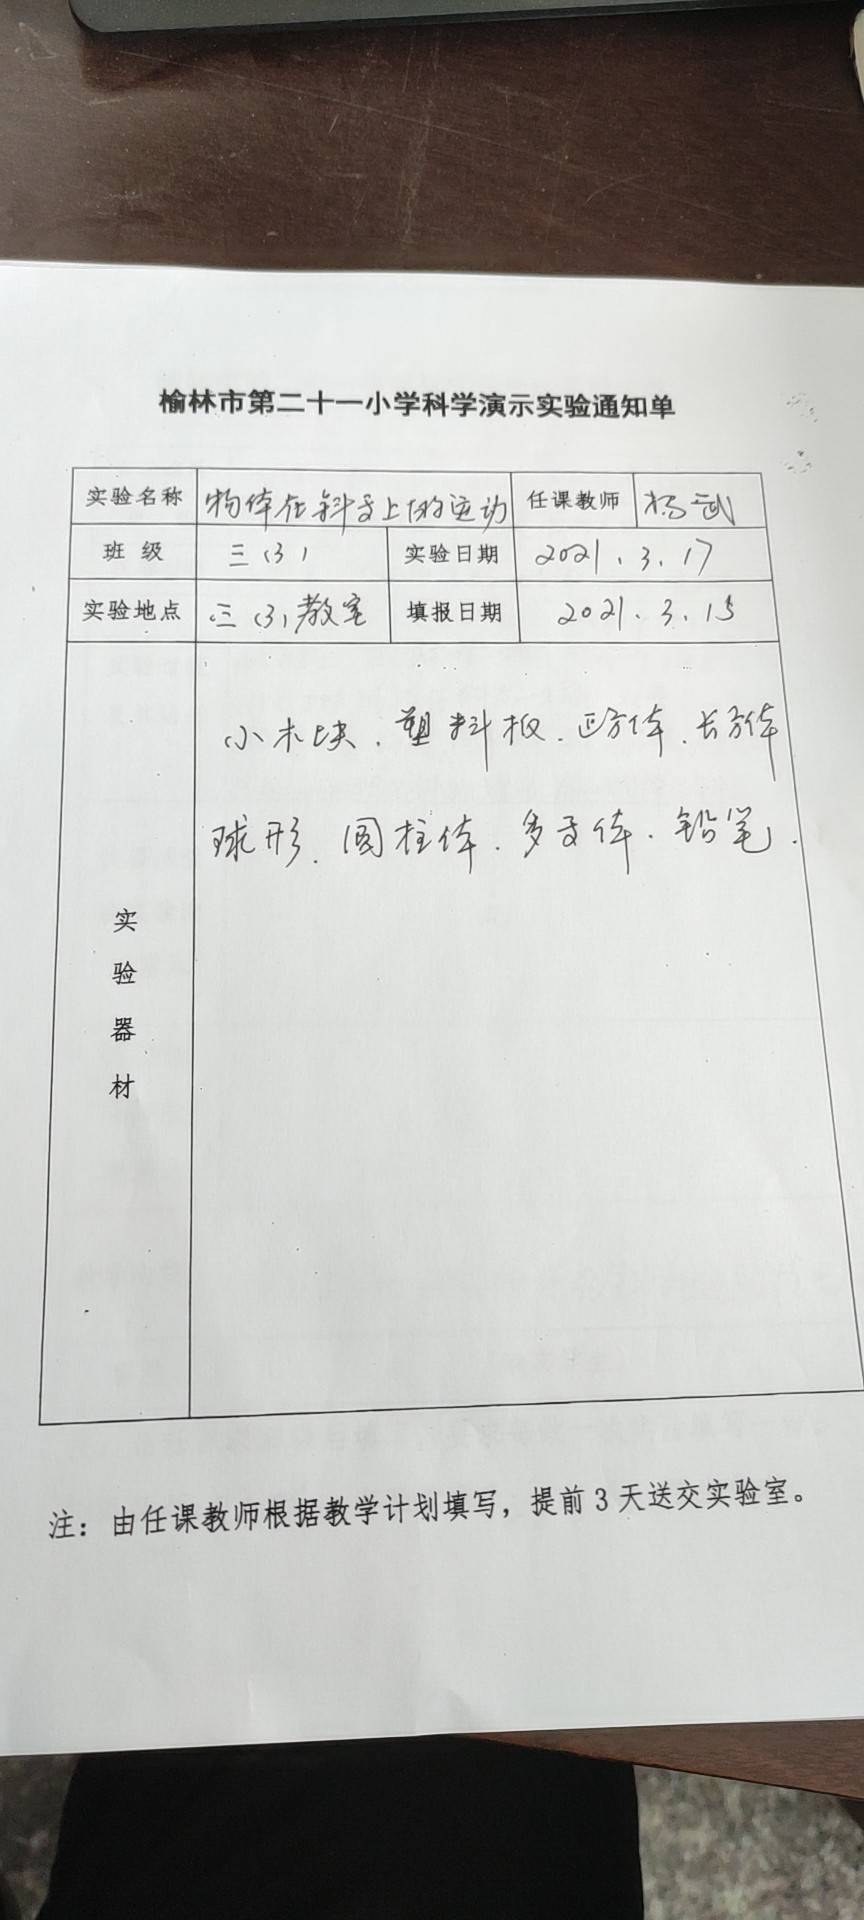 榆林市第二十一小学科学演示实验通知单
实验名称 物体在斜面上的运动 任课教师 杨武
班级 三(3) 实验日期 2021.3.17
实验地点 三(3)教室 填报日期 2021.3.15
实验器材
小木块、塑料板、正方体、长方体
球形、圆柱体、多面体、铅笔.
注：由任课教师根据教学计划填写，提前3天送交实验室。